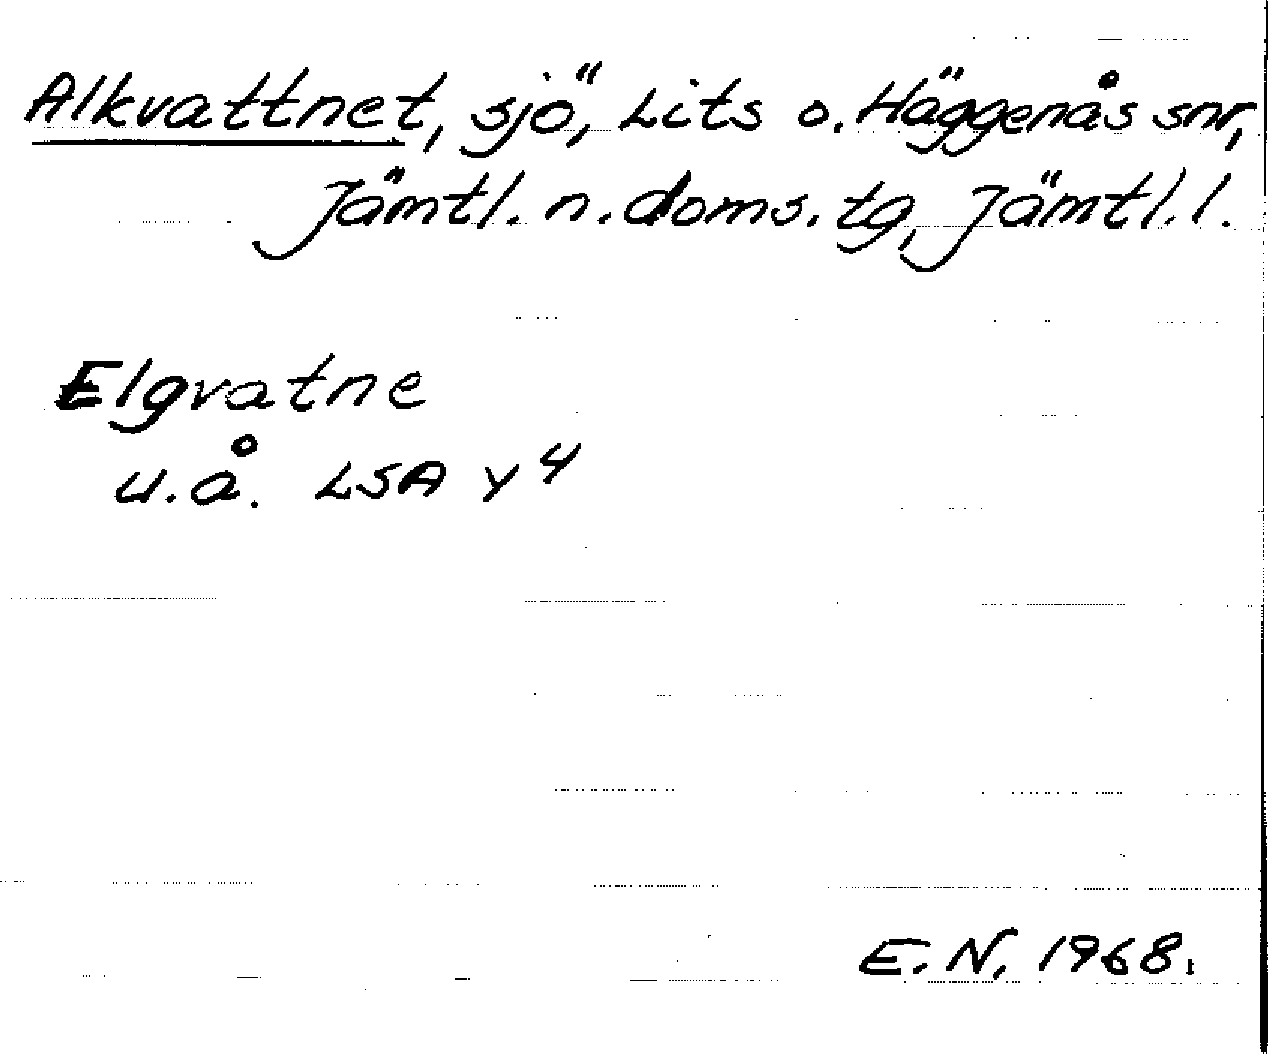 Alkvattnet, sjö, Lits o. Häggenås snr,
Jämtl. n. doms. tg, Jämtl. l.
Elgvatne
u.å. LSA Y 4
E.N. 1968.